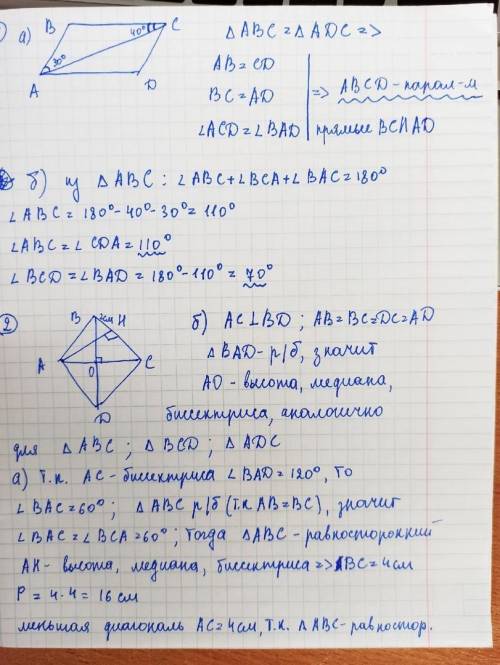 а) B C 40° 30° A D △ABC = △ADC =>
AB = CD
BC = AD => ABCD - парал-м
∠ACD = ∠BAD прямые BC II AD
б) из △ABC : ∠ABC + ∠BCA + ∠BAC = 180°
∠ABC = 180° - 40° - 30° = 110°
∠ABC = ∠CDA = 110°
∠BCD = ∠BAD = 180° - 110° = 70°
2 B H A O C D б) AC ⊥ BD ; AB = BC = DC = AD
△BAD - р/б, значит
AO - высота, медиана,
биссектриса, аналогично
для △ABC ; △BCD ; △ADC
а) т.к. AC - биссектриса ∠BAD = 120°, то
∠BAC = 60° ; △ABC р/б (т.к AB = BC), значит
∠BAC = ∠BCA = 60° ; тогда △ABC - равносторонний
AH - высота, медиана, биссектриса => BC = 4 см
P = 4 · 4 = 16 см
меньшая диагональ AC = 4 см, т.к. △ABC - равностор.